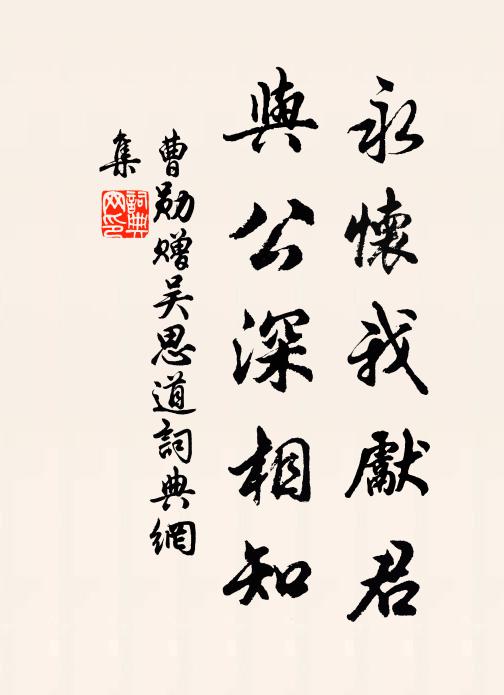 永懷我獻君
與公深相知
曹勛贈吳思道詞典網
集
詞典网印